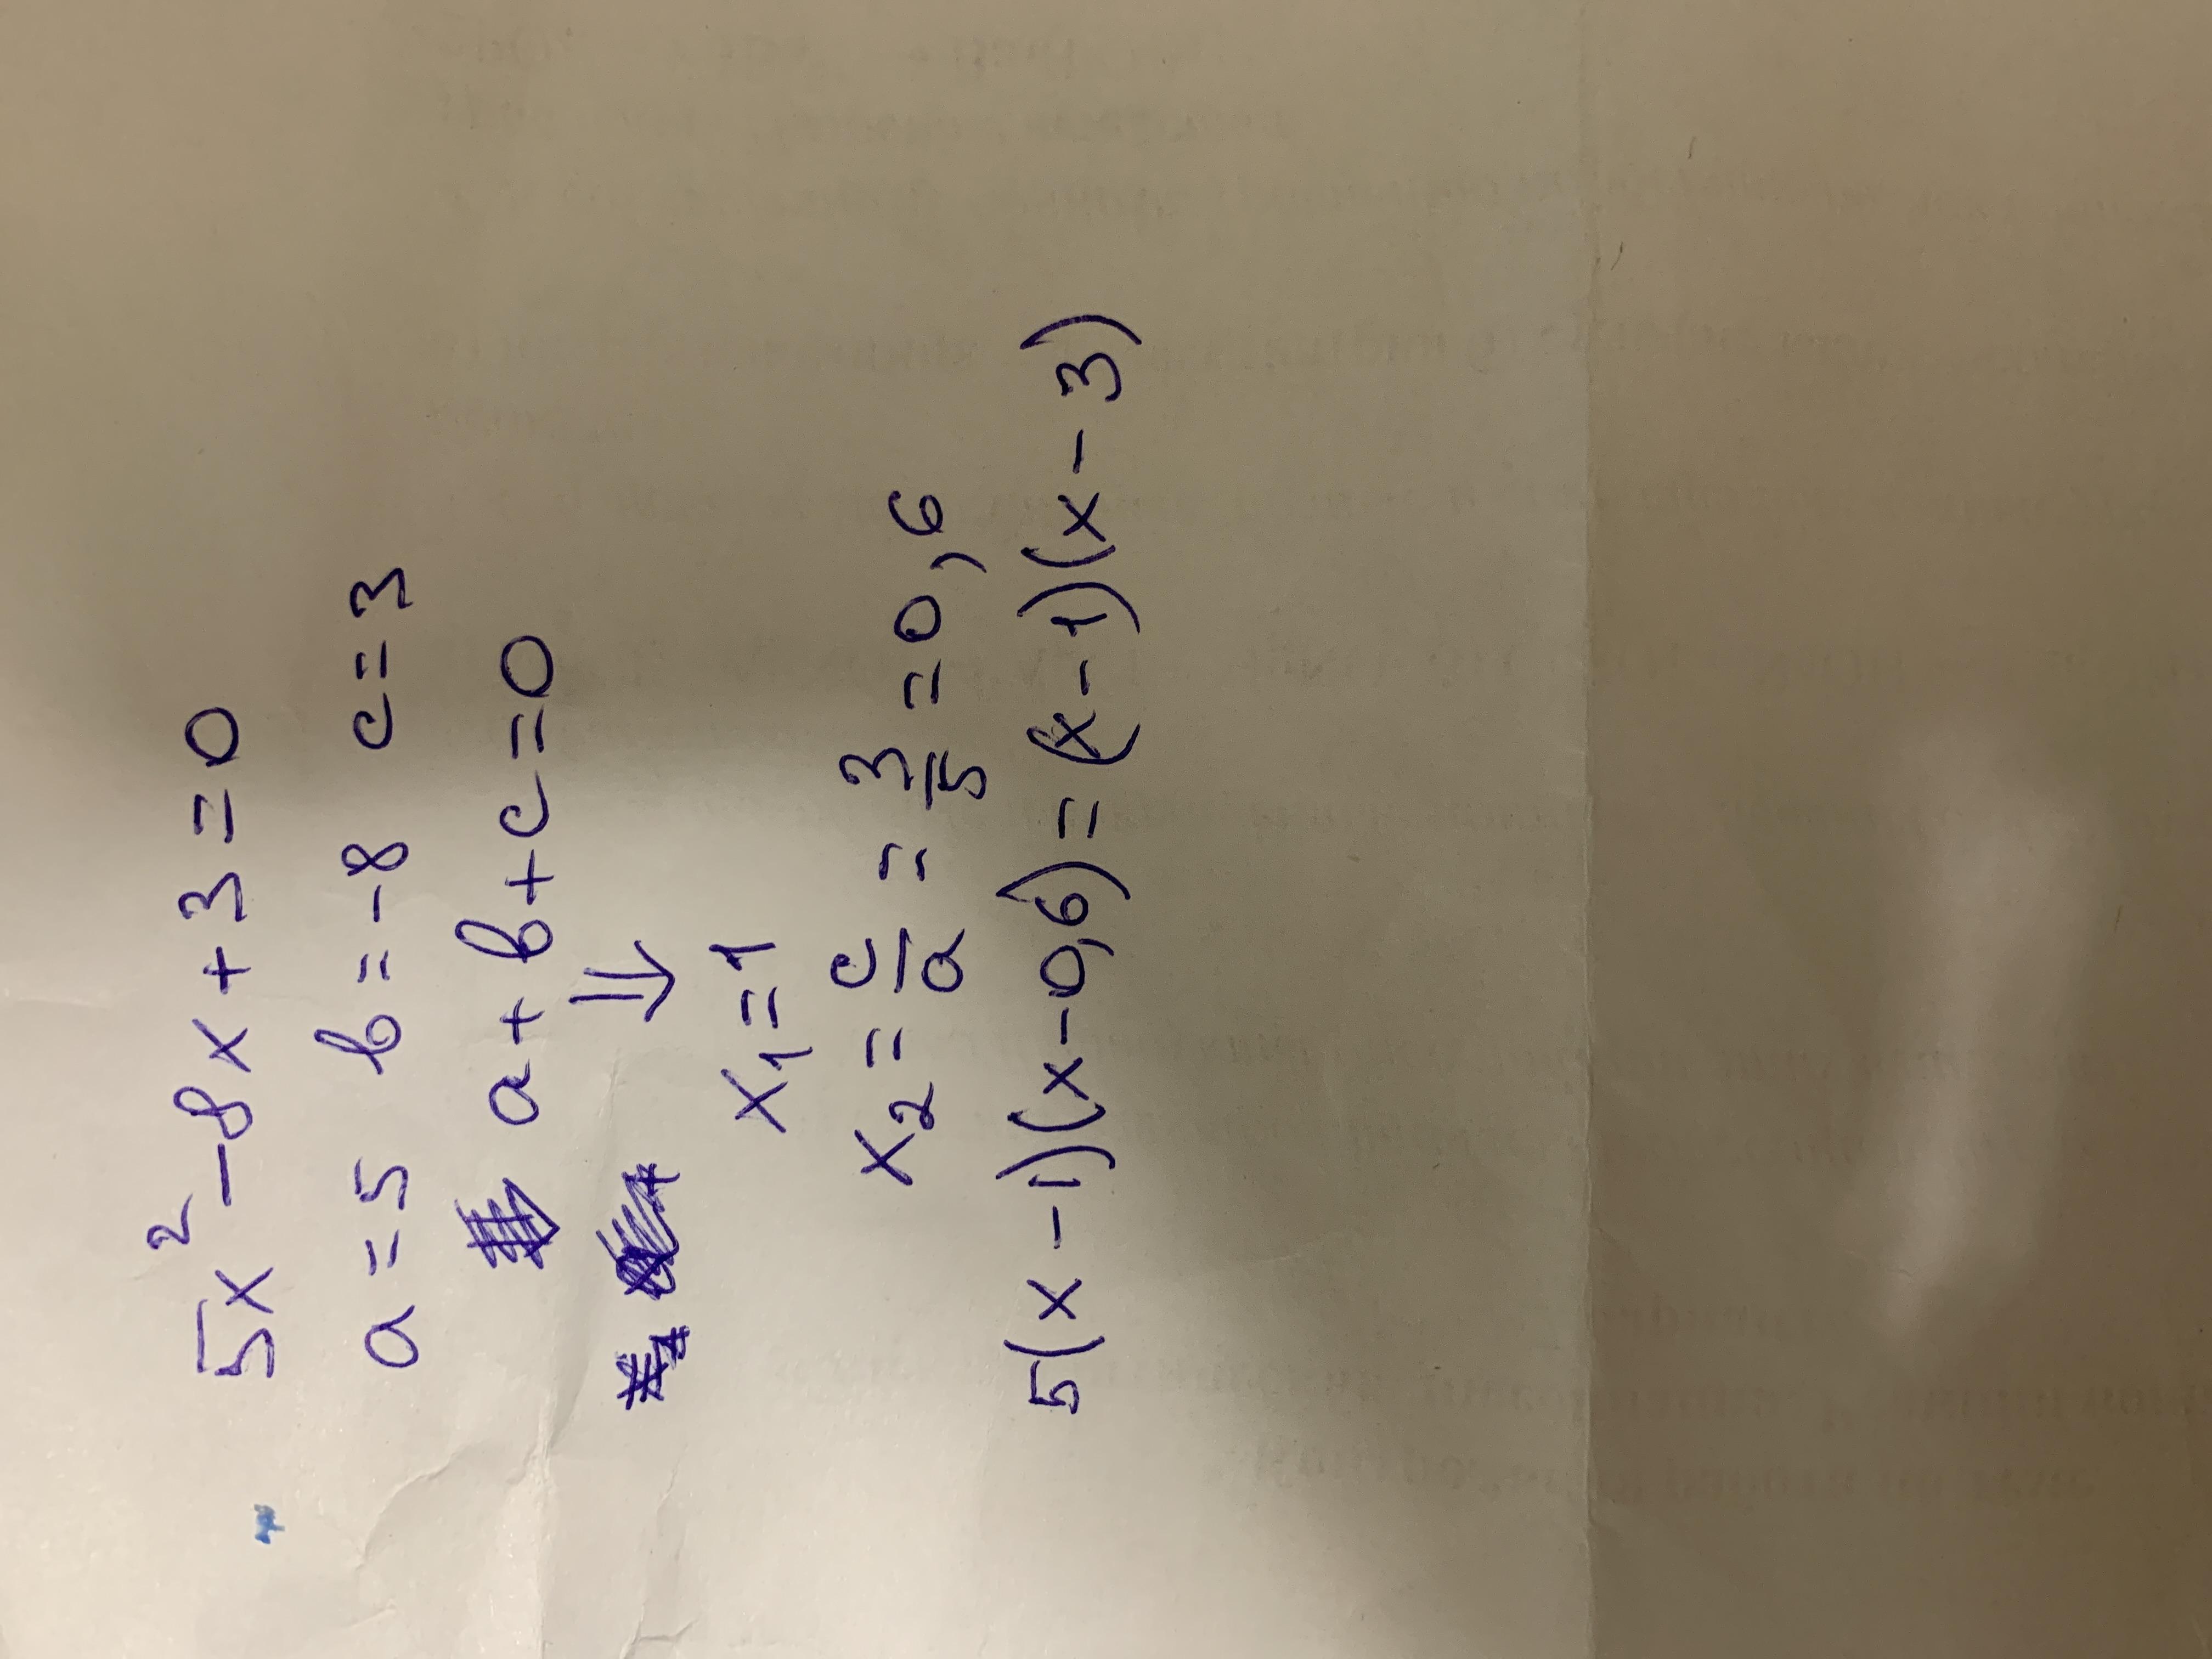 5x²-8x+3=0
a=5 b=-8 c=3
a+b+c=0
⇓
x₁=1
x₂=c/a=3/5=0,6
5(x-1)(x-0,6)=(x-1)(x-3)